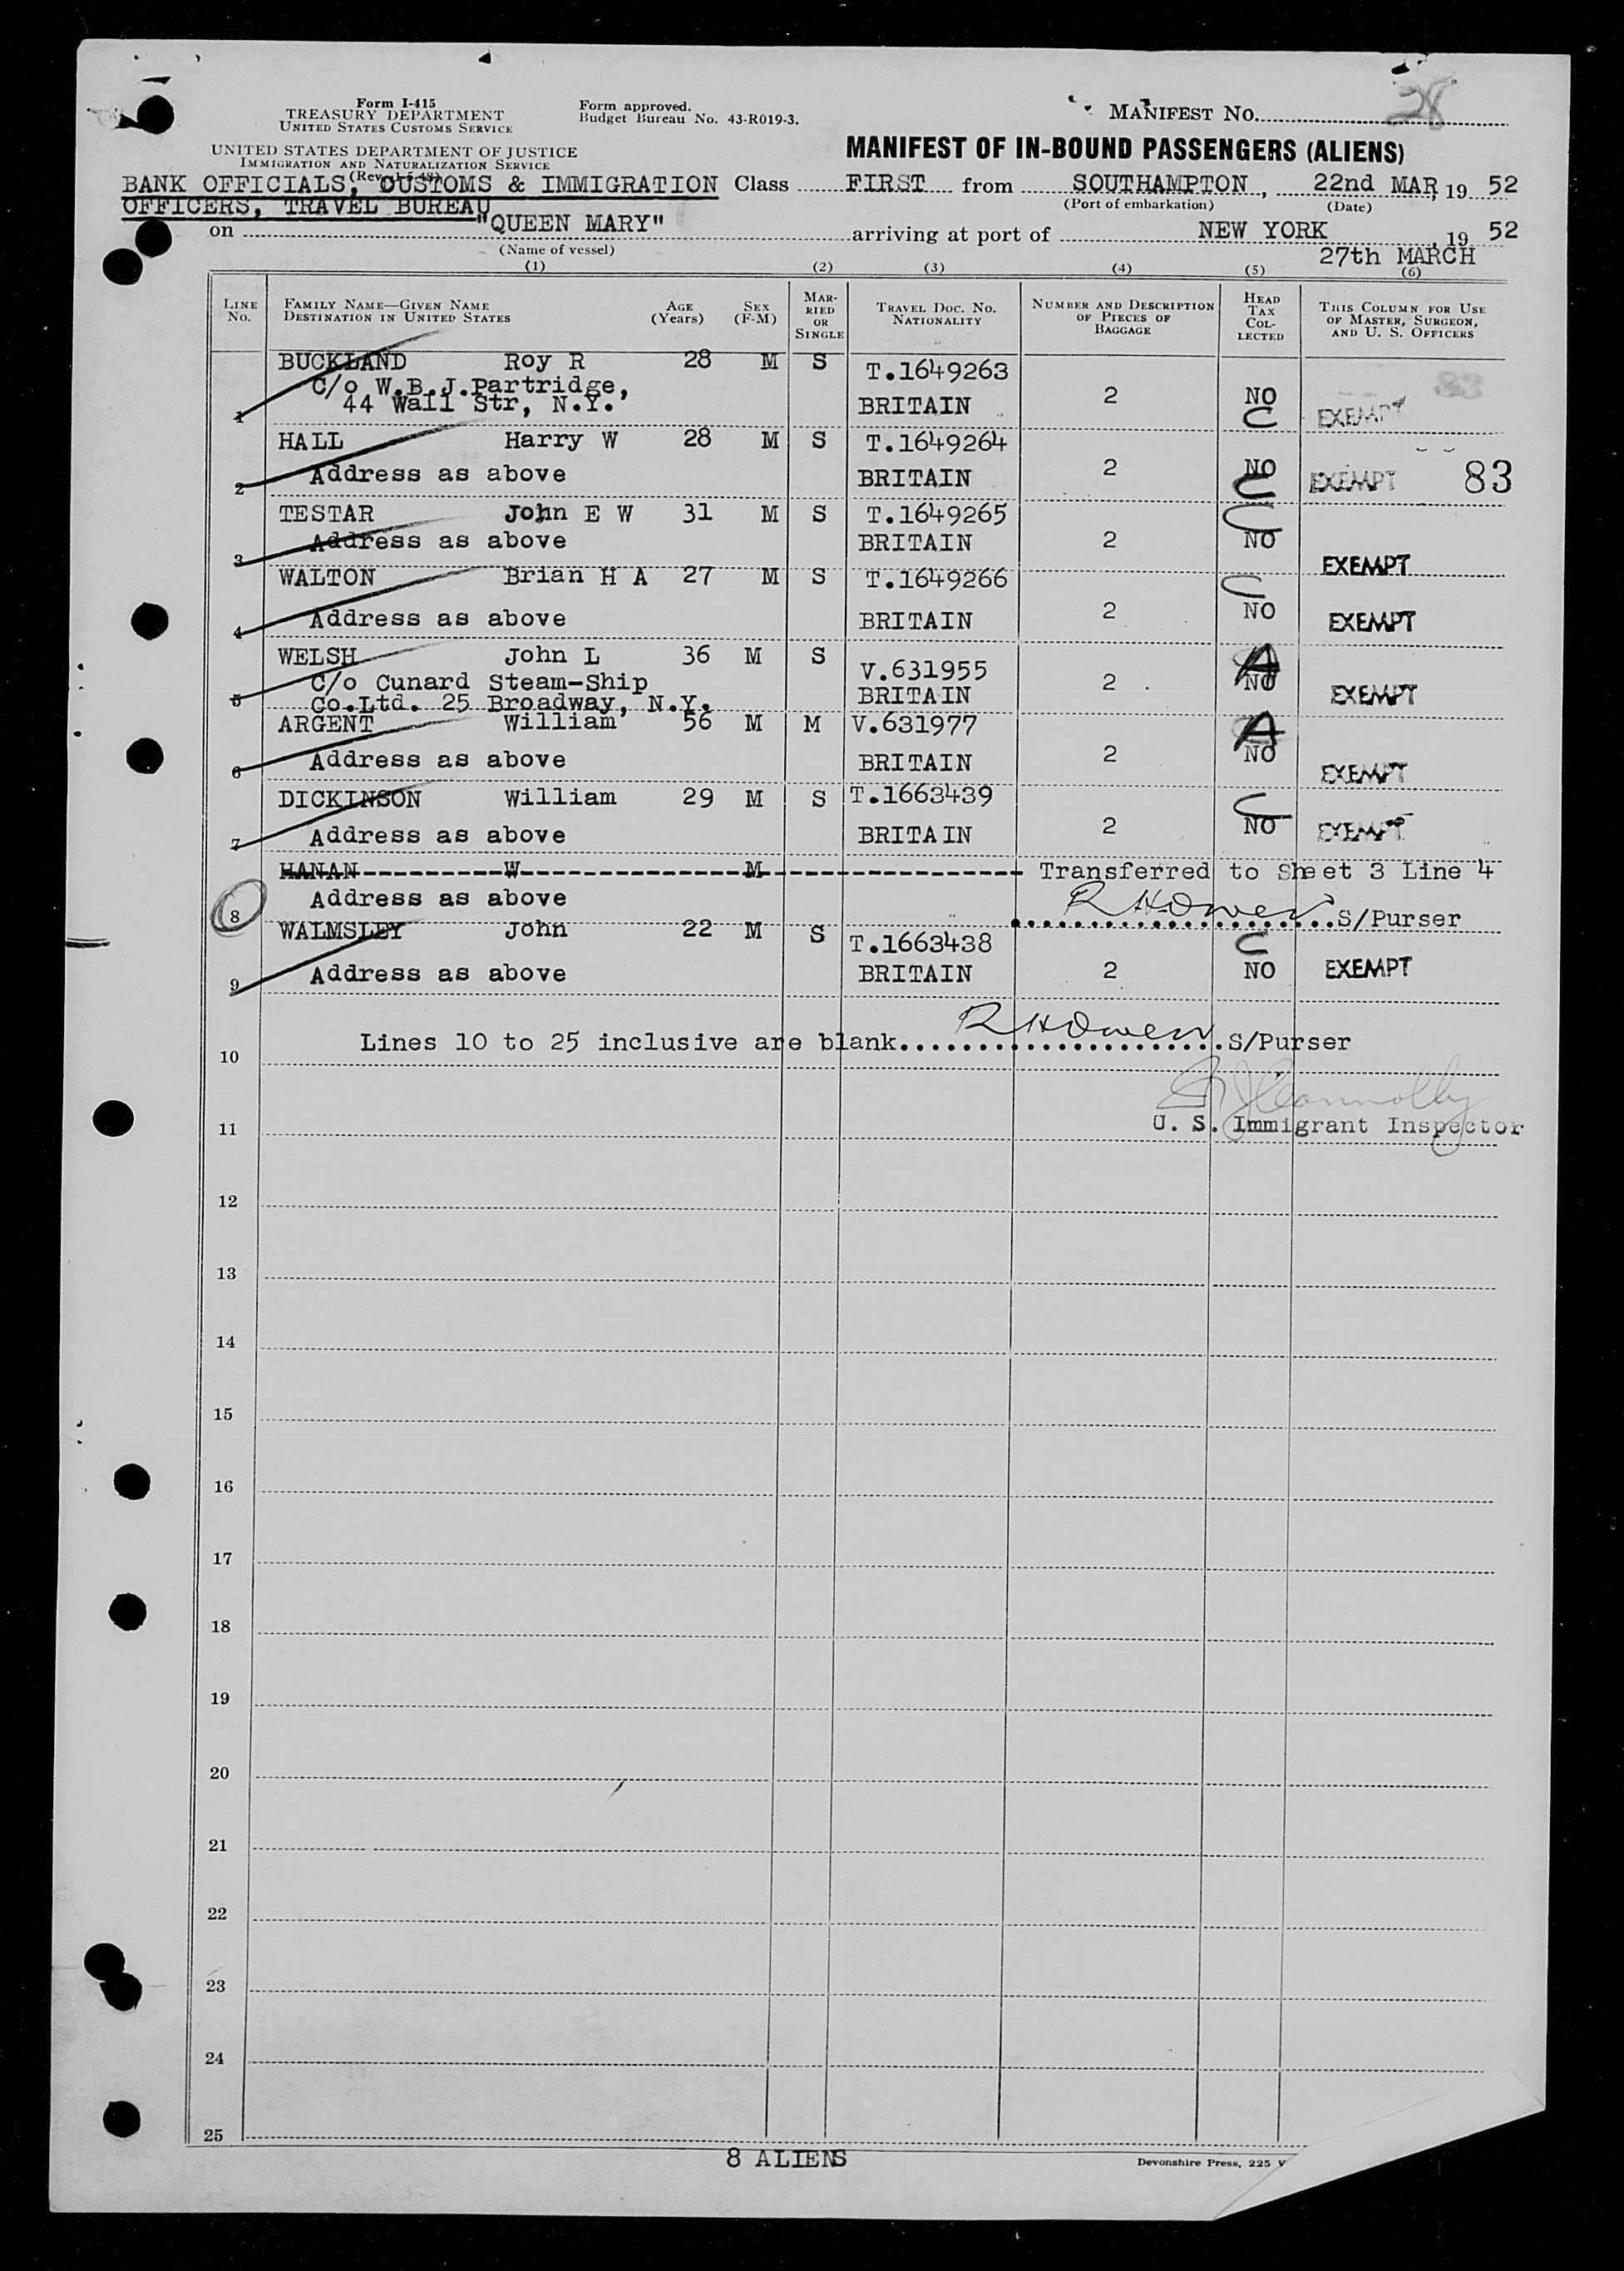 Form I-415
TREASURY DEPARTMENT
UNITED STATES CUSTOMS SERVICE
Form approved.
Budget Bureau No. 43-R019-3.
MANIFEST No. 28
UNITED STATES DEPARTMENT OF JUSTICE
IMMIGRATION AND NATURALIZATION SERVICE
MANIFEST OF IN-BOUND PASSENGERS (ALIENS)
BANK OFFICIALS, CUSTOMS & IMMIGRATION Class FIRST from SOUTHAMPTON, 22nd MAR, 19 52
OFFICERS, TRAVEL BUREAU (Port of embarkation) (Date)
on "QUEEN MARY" arriving at port of NEW YORK, 19 52
(Name of vessel) 27th MARCH
(1) (2) (3) (4) (5) (6)
LINE No. FAMILY NAME—GIVEN NAME DESTINATION IN UNITED STATES AGE (Years) SEX (F-M) MARRIED OR SINGLE TRAVEL DOC. NO. NATIONALITY NUMBER AND DESCRIPTION OF PIECES OF BAGGAGE HEAD TAX COLLECTED THIS COLUMN FOR USE OF MASTER, SURGEON, AND U. S. OFFICERS
BUCKLAND Roy R 28 M S T.1649263
C/o W.B.J.Partridge, 2 NO 83
1 44 Wall Str, N.Y. BRITAIN C EXEMPT
HALL Harry W 28 M S T.1649264
2 Address as above BRITAIN 2 NO C EXEMPT 83
TESTAR John E W 31 M S T.1649265 C
3 Address as above BRITAIN 2 NO EXEMPT
WALTON Brian H A 27 M S T.1649266 C
4 Address as above BRITAIN 2 NO EXEMPT
WELSH John L 36 M S V.631955 A
C/o Cunard Steam-Ship 2 NO
5 Co.Ltd. 25 Broadway, N.Y. BRITAIN EXEMPT
ARGENT William 56 M M V.631977 A
6 Address as above BRITAIN 2 NO EXEMPT
DICKINSON William 29 M S T.1663439 C
7 Address as above BRITAIN 2 NO EXEMPT
HANAN W M Transferred to Sheet 3 Line 4
8 Address as above R H Owen S/Purser
WALMSLEY John 22 M S T.1663438 C
9 Address as above BRITAIN 2 NO EXEMPT
Lines 10 to 25 inclusive are blank R H Owen S/Purser
10
Connolly
11 U. S. Immigrant Inspector
12
13
14
15
16
17
18
19
20
21
22
23
24
25
8 ALIENS
Devonshire Press, 225